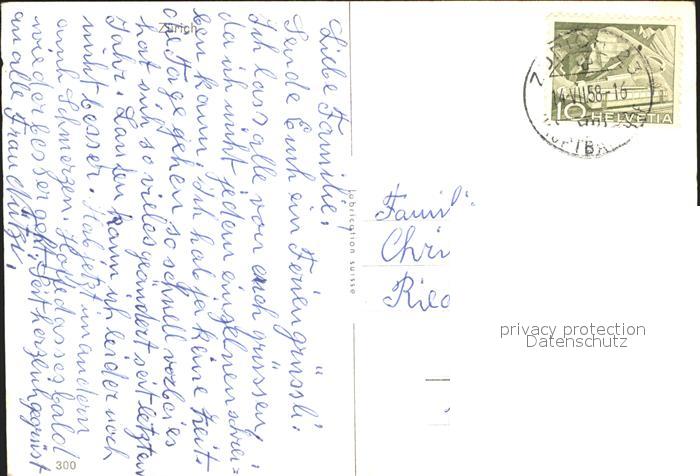 Zürich
Liebe Familie!
Sende Euch ein Feriengrüssli.
Ich lass alle von euch grüssen,
da ich nicht jedem einzelnen schrei=
ben kann. Ich hab ja keine Zeit.
die Tage gehen so schnell vorbei es
hat sich so vieles geändert seit letzten
Jahr. Laufen kann ich leider noch
nicht besser. Hab jetzt im andern
auch Schmerzen. Hoffe dass es bald
wieder besser geht. Seit herzlich gegrüst
an alle Frau
300
Fabrication suisse
Famil
Chri
Ried
ZÜRICH 23
14.VII.58-16
10 HELVETIA
privacy protection
Datenschutz